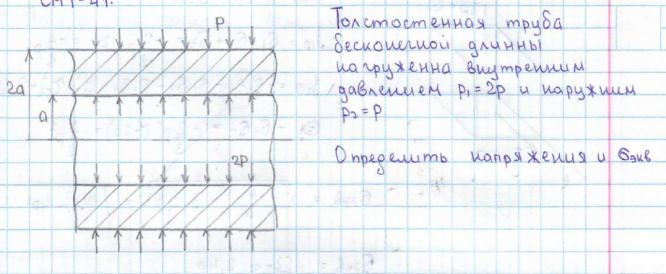 P
Толстостенная труба
бесконечной длинны
нагруженна внутренним
давлением p₁ = 2p и наружним
p₂ = P
2a
a
2P
Определить напряжения и σэкв